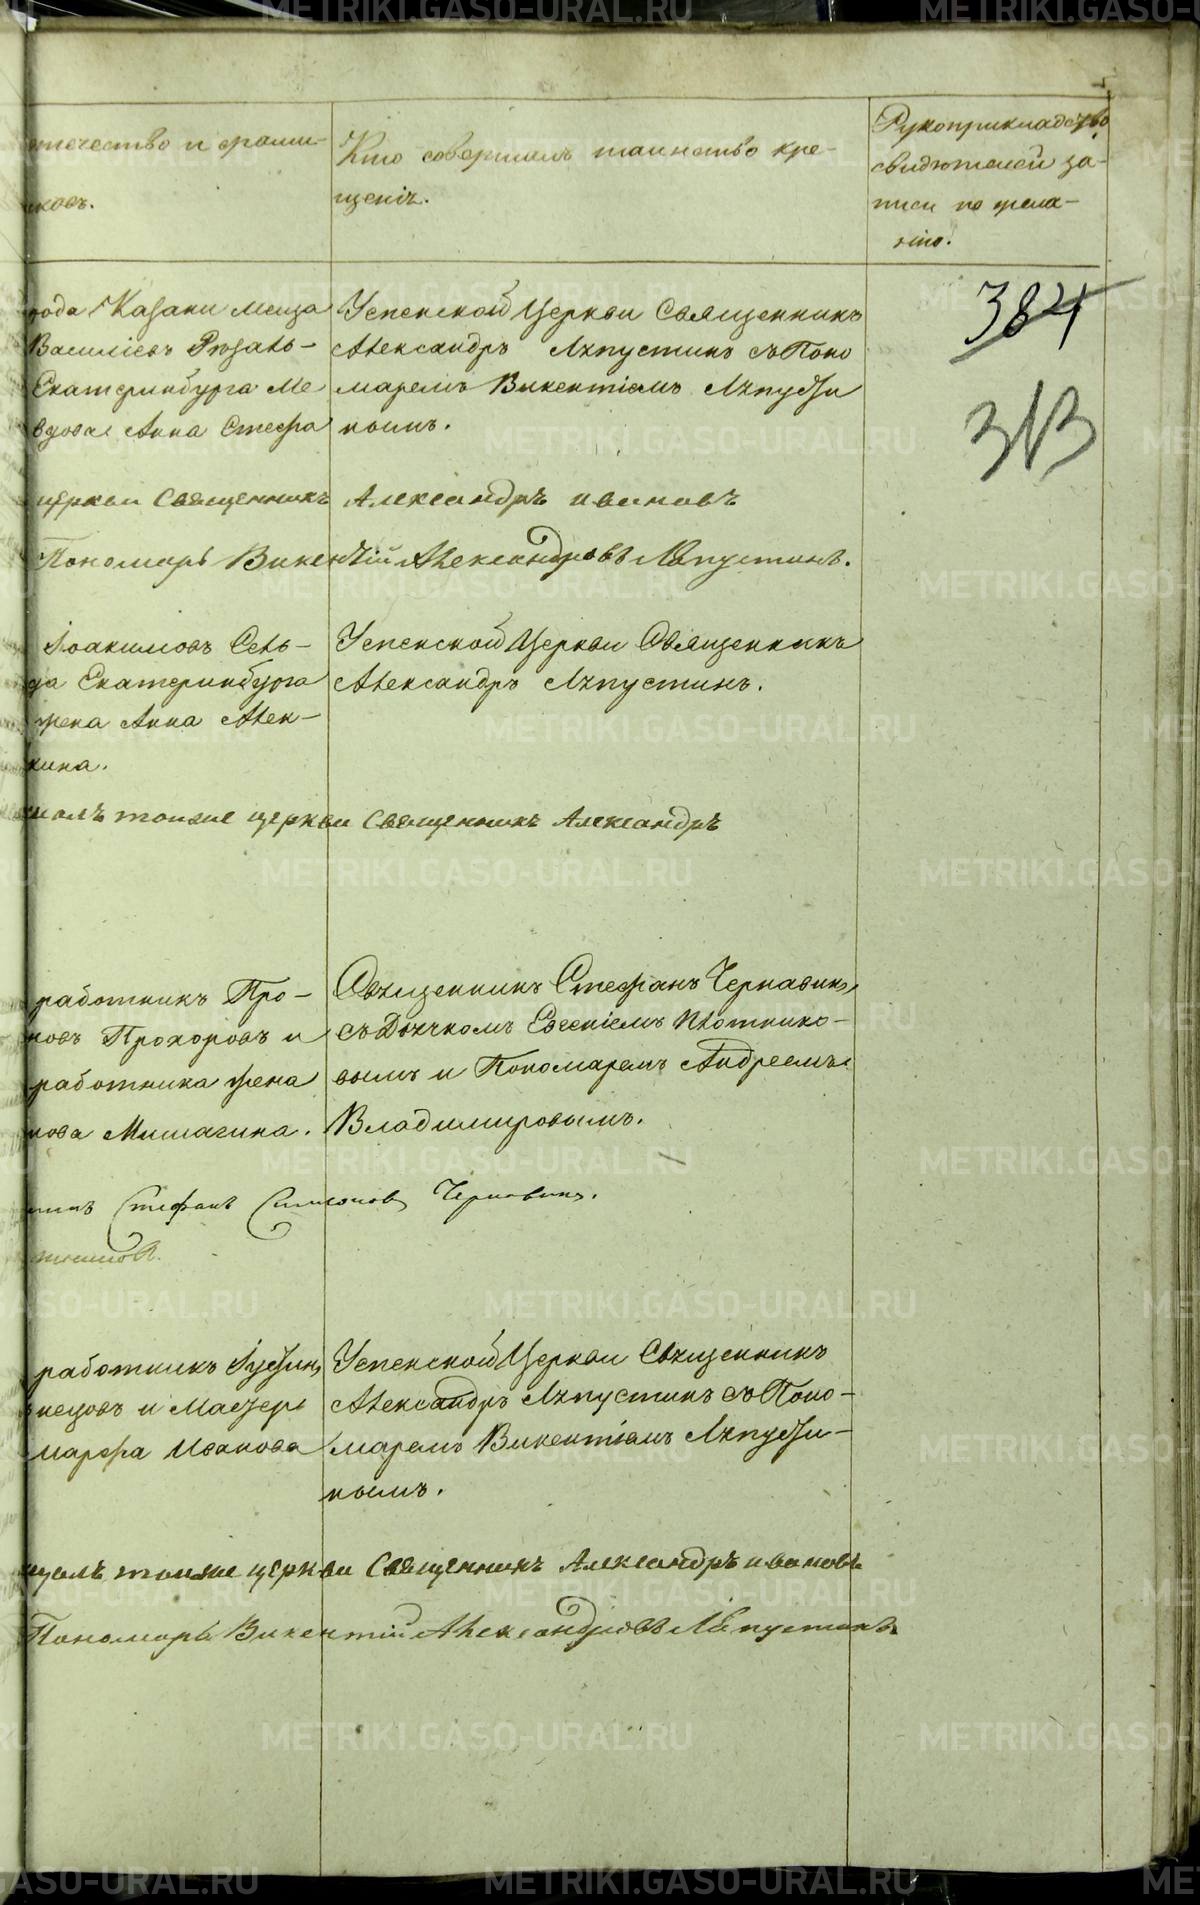 отчество и фами-
Кто совершалъ таинство кре-
щенія.
Рукоприкладство
свидѣтелей за-
писи по жела-
нію.
384
313
рода Казани меща
Василіевъ Рязань-
Екатеринбурга Ме
вдова Анна Стефа
Успенской Церкви Священникъ
Александръ Ляпустинъ съ Поно
маремъ Викентіемъ Ляпусти
нымъ.
церкви Священникъ Александръ Ивановъ
Пономарь Викентій Александровъ Ляпустинъ.
Іоакимовъ Сель-
да Екатеринбурга
жена Анна Алек-
кина.
Успенской Церкви Священникъ
Александръ Ляпустинъ.
тойже церкви Священникъ Александръ
работникъ Про-
новъ Прохоровъ и
работника жена
нова Мишагина.
Священникъ Стефанъ Чернавинъ
съ Дьячкомъ Евгеніемъ Плотнико-
вымъ и Пономаремъ Андреемъ
Владимировымъ.
Стефанъ Симоновъ Чернавинъ.
работникъ Іустинъ
нецовъ и Мастер
марфа Иванова
Успенской Церкви Священникъ
Александръ Ляпустинъ съ Поно-
маремъ Викентіемъ Ляпусти-
нымъ.
тойже церкви Священникъ Александръ Ивановъ
Пономарь Викентій Александровъ Ляпустинъ.
METRIKI.GASO-URAL.RU